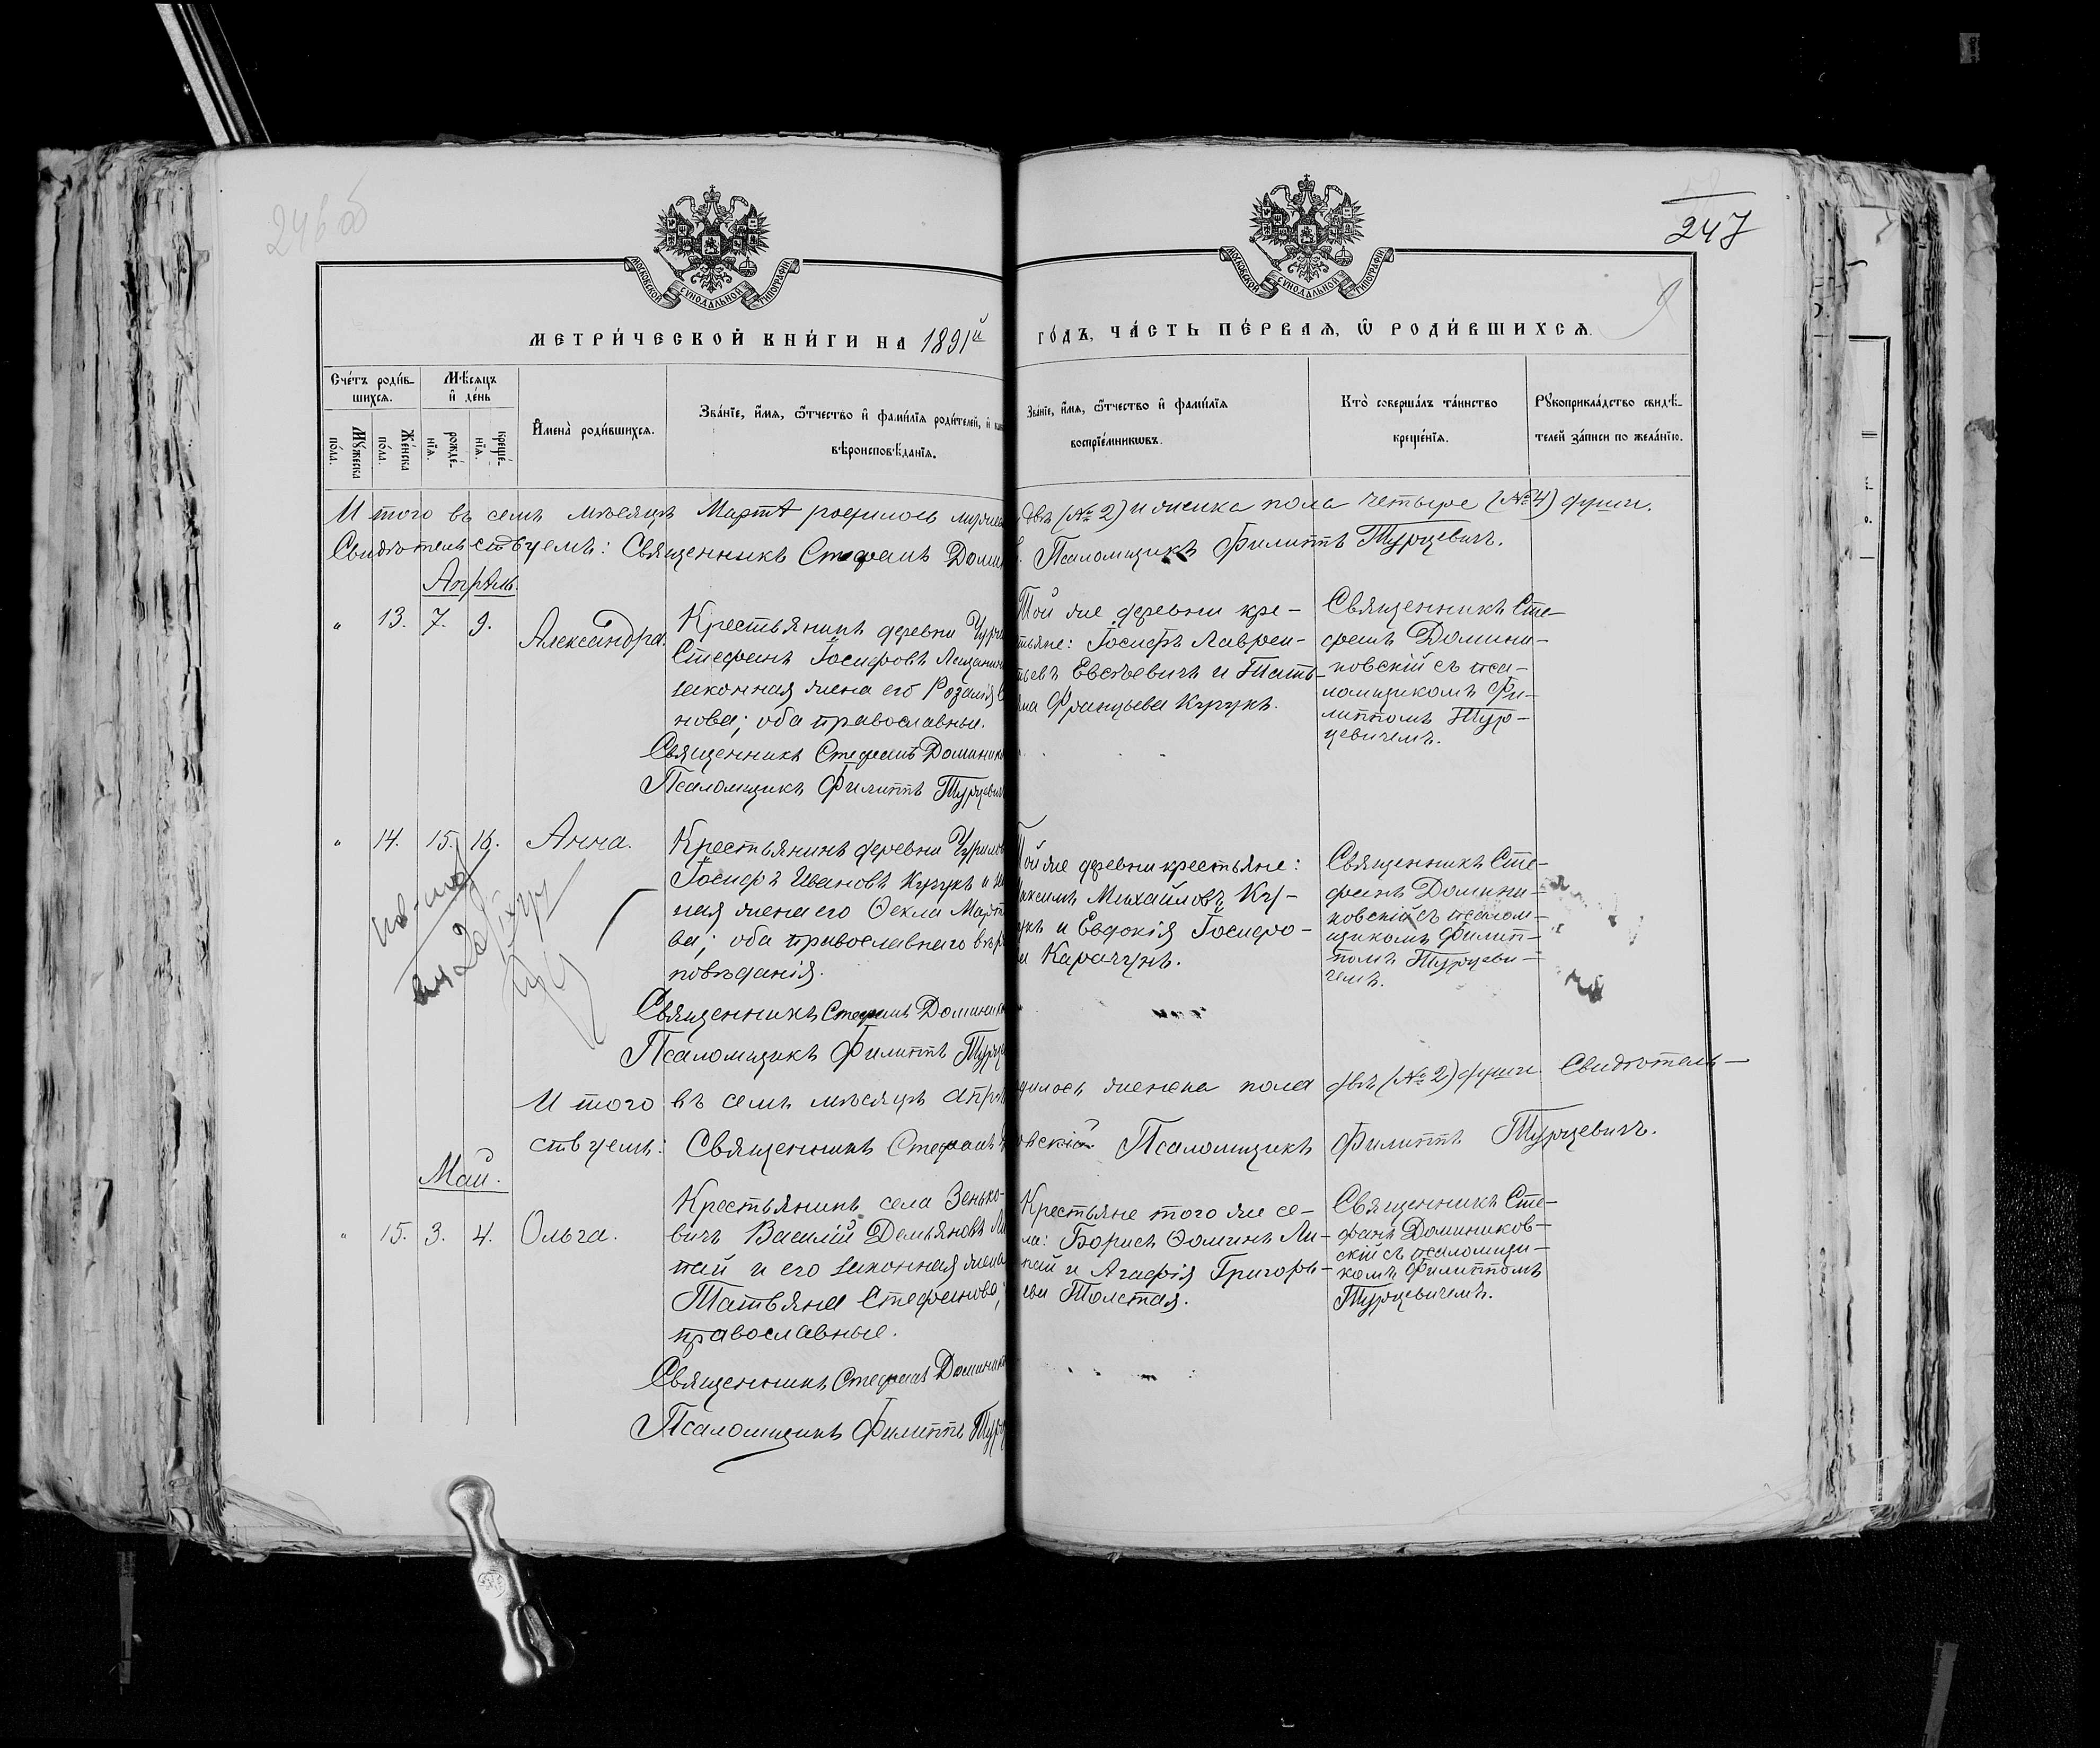 246 об
247
9
МОСКОВСКОЙ СѴНОДАЛЬНОЙ ТИПОГРАФІИ
МОСКОВСКОЙ СѴНОДАЛЬНОЙ ТИПОГРАФІИ
МЕТРИ́ЧЕСКОЙ КНИ́ГИ НА 1891й
ГО́ДЪ, ЧА́СТЬ ПЕ́РВАѦ, Ѡ҆ РОДИ́ВШИХСѦ.
Сче́тъ роди́в-
шихсѧ.
Мѣ́сѧцъ
и҆ де́нь
Мꙋ́жеска
по́ла.
Же́нска
по́ла.
рожде́-
нїѧ.
креще́-
нїѧ.
И҆мена̀ роди́вшихсѧ.
Зва́нїе, и҆́мѧ, ѻ҆́тчество и҆ фами́лїѧ роди́телей, и҆
вѣроисповѣ́данїѧ.
Зва́нїе, и҆́мѧ, ѻ҆́тчество и҆ фами́лїѧ
воспрїе́мникѡвъ.
Кто̀ соверша́лъ та́инство
креще́нїѧ.
Рꙋкоприкла́дство свидѣ́-
телей за́писи по жела́нїю.
И того въ семъ мѣсяцѣ Мартѣ родилось мужеск
двѣ (№ 2) и женска пола четыре (№ 4) души.
Свидѣтельствуемъ: Священникъ Стефанъ Домин
Псаломщикъ Филиппъ Турцевичъ.
Апрѣль.
" 13. 7. 9. Александра.
Крестьянинъ деревни Чури
Стефанъ Іосифовъ
законная жена его Розалія
нова; оба православные.
Священникъ Стефанъ Доминик
Псаломщикъ Филиппъ Турцевич
Той же деревни кре-
стьяне: Іосифъ Лаврен-
тьевъ Евсѣевичъ и Тать-
яна Францьева Куцукъ.
Священникъ Сте-
фанъ Домини-
ковскій съ пса-
ломщикомъ Фи-
липпомъ Тур-
цевичемъ.
" 14. 15. 16. Анна.
Крестьянинъ деревни Чурилов
Іосифъ Ивановъ Куцукъ и
ная жена его Ѳекла Март
ва; оба православнаго вѣро
повѣданія.
Священникъ Стефанъ Доминик
Псаломщикъ Филиппъ Турце
Той же деревни крестьяне:
Максимъ Михайловъ Ку-
цукъ и Евдокія Іосифо-
ва Карачунъ.
Священникъ Сте-
фанъ Домини-
ковскій съ псалом-
щикомъ Филип-
помъ Турцеви-
чемъ.
И того въ семъ мѣсяцѣ Апрѣ
дилось женска пола двѣ (№ 2) души. Свидѣтель-
ствуемъ: Священникъ Стефанъ
овскій Псаломщикъ Филиппъ Турцевичъ.
Май.
" 15. 3. 4. Ольга.
Крестьянинъ села Зенько-
вичъ Василій Демьяновъ Ли
пай и его законная жена
Татьяна Стефанова;
православные.
Священникъ Стефанъ Доминик
Псаломщикъ Филиппъ Турц
Крестьяне того же се-
ла: Борисъ Ѳоминъ Ли-
пай и Агафія Григорь-
ева Толстая.
Священникъ Сте-
фанъ Домиников-
скій съ псаломщи-
комъ Филиппомъ
Турцевичемъ.